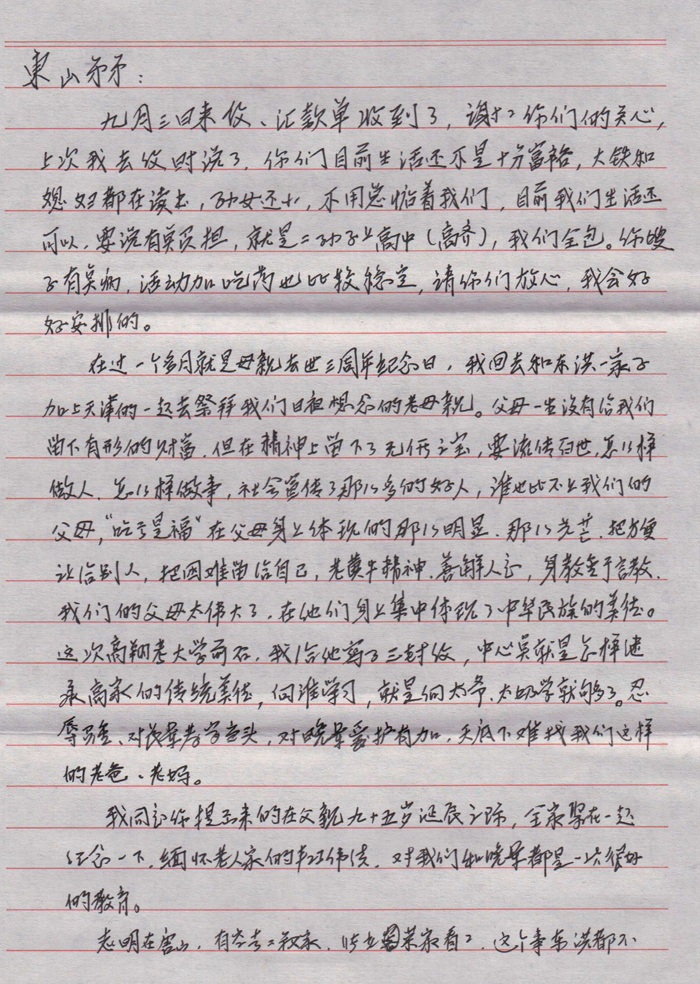 东山弟弟：
九月三日来信、汇款单收到了，谢谢你们的关心，
上次我去信时说了，你们目前生活还不是十分富裕，大铁和
媳妇都在读书，孙女还小，不用总惦着我们，目前我们生活还
可以，要说有点负担，就是二孙子上高中（高齐），我们全包。你嫂
子有点病，活动加吃药也比较稳定，请你们放心，我会好
好安排的。
在过一个多月就是母亲去世三周年纪念日，我回去和东洪一家子
加上天津的一起去祭拜我们日夜想念的老母亲。父母一生没有给我们
留下有形的财富，但在精神上留下了无价之宝，要流传后世，怎么样
做人，怎么样做事，社会宣传了那么多的好人，谁也比不上我们的
父母，“吃亏是福”在父母身上体现的那么明显，那么光芒，把方便
让给别人，把困难留给自己，老黄牛精神，善解人意，身教重于言教，
我们的父母太伟大了，在他们身上集中体现了中华民族的美德。
这次高翔考大学前后，我给他写了三封信，中心点就是怎样继
承高家的传统美德，向谁学习，就是向太爷、太奶学就够了。忍
辱负重、对长辈孝字当头，对晚辈爱护有加，天底下难找我们这样
的老爸、老妈。
我同意你提出来的在父亲九十五岁诞辰之际，全家聚在一起
纪念一下，缅怀老人家的丰功伟绩，对我们和晚辈都是一次很好
的教育。
志明在唐山，有空去二叔家，看了，这个事东洪都不